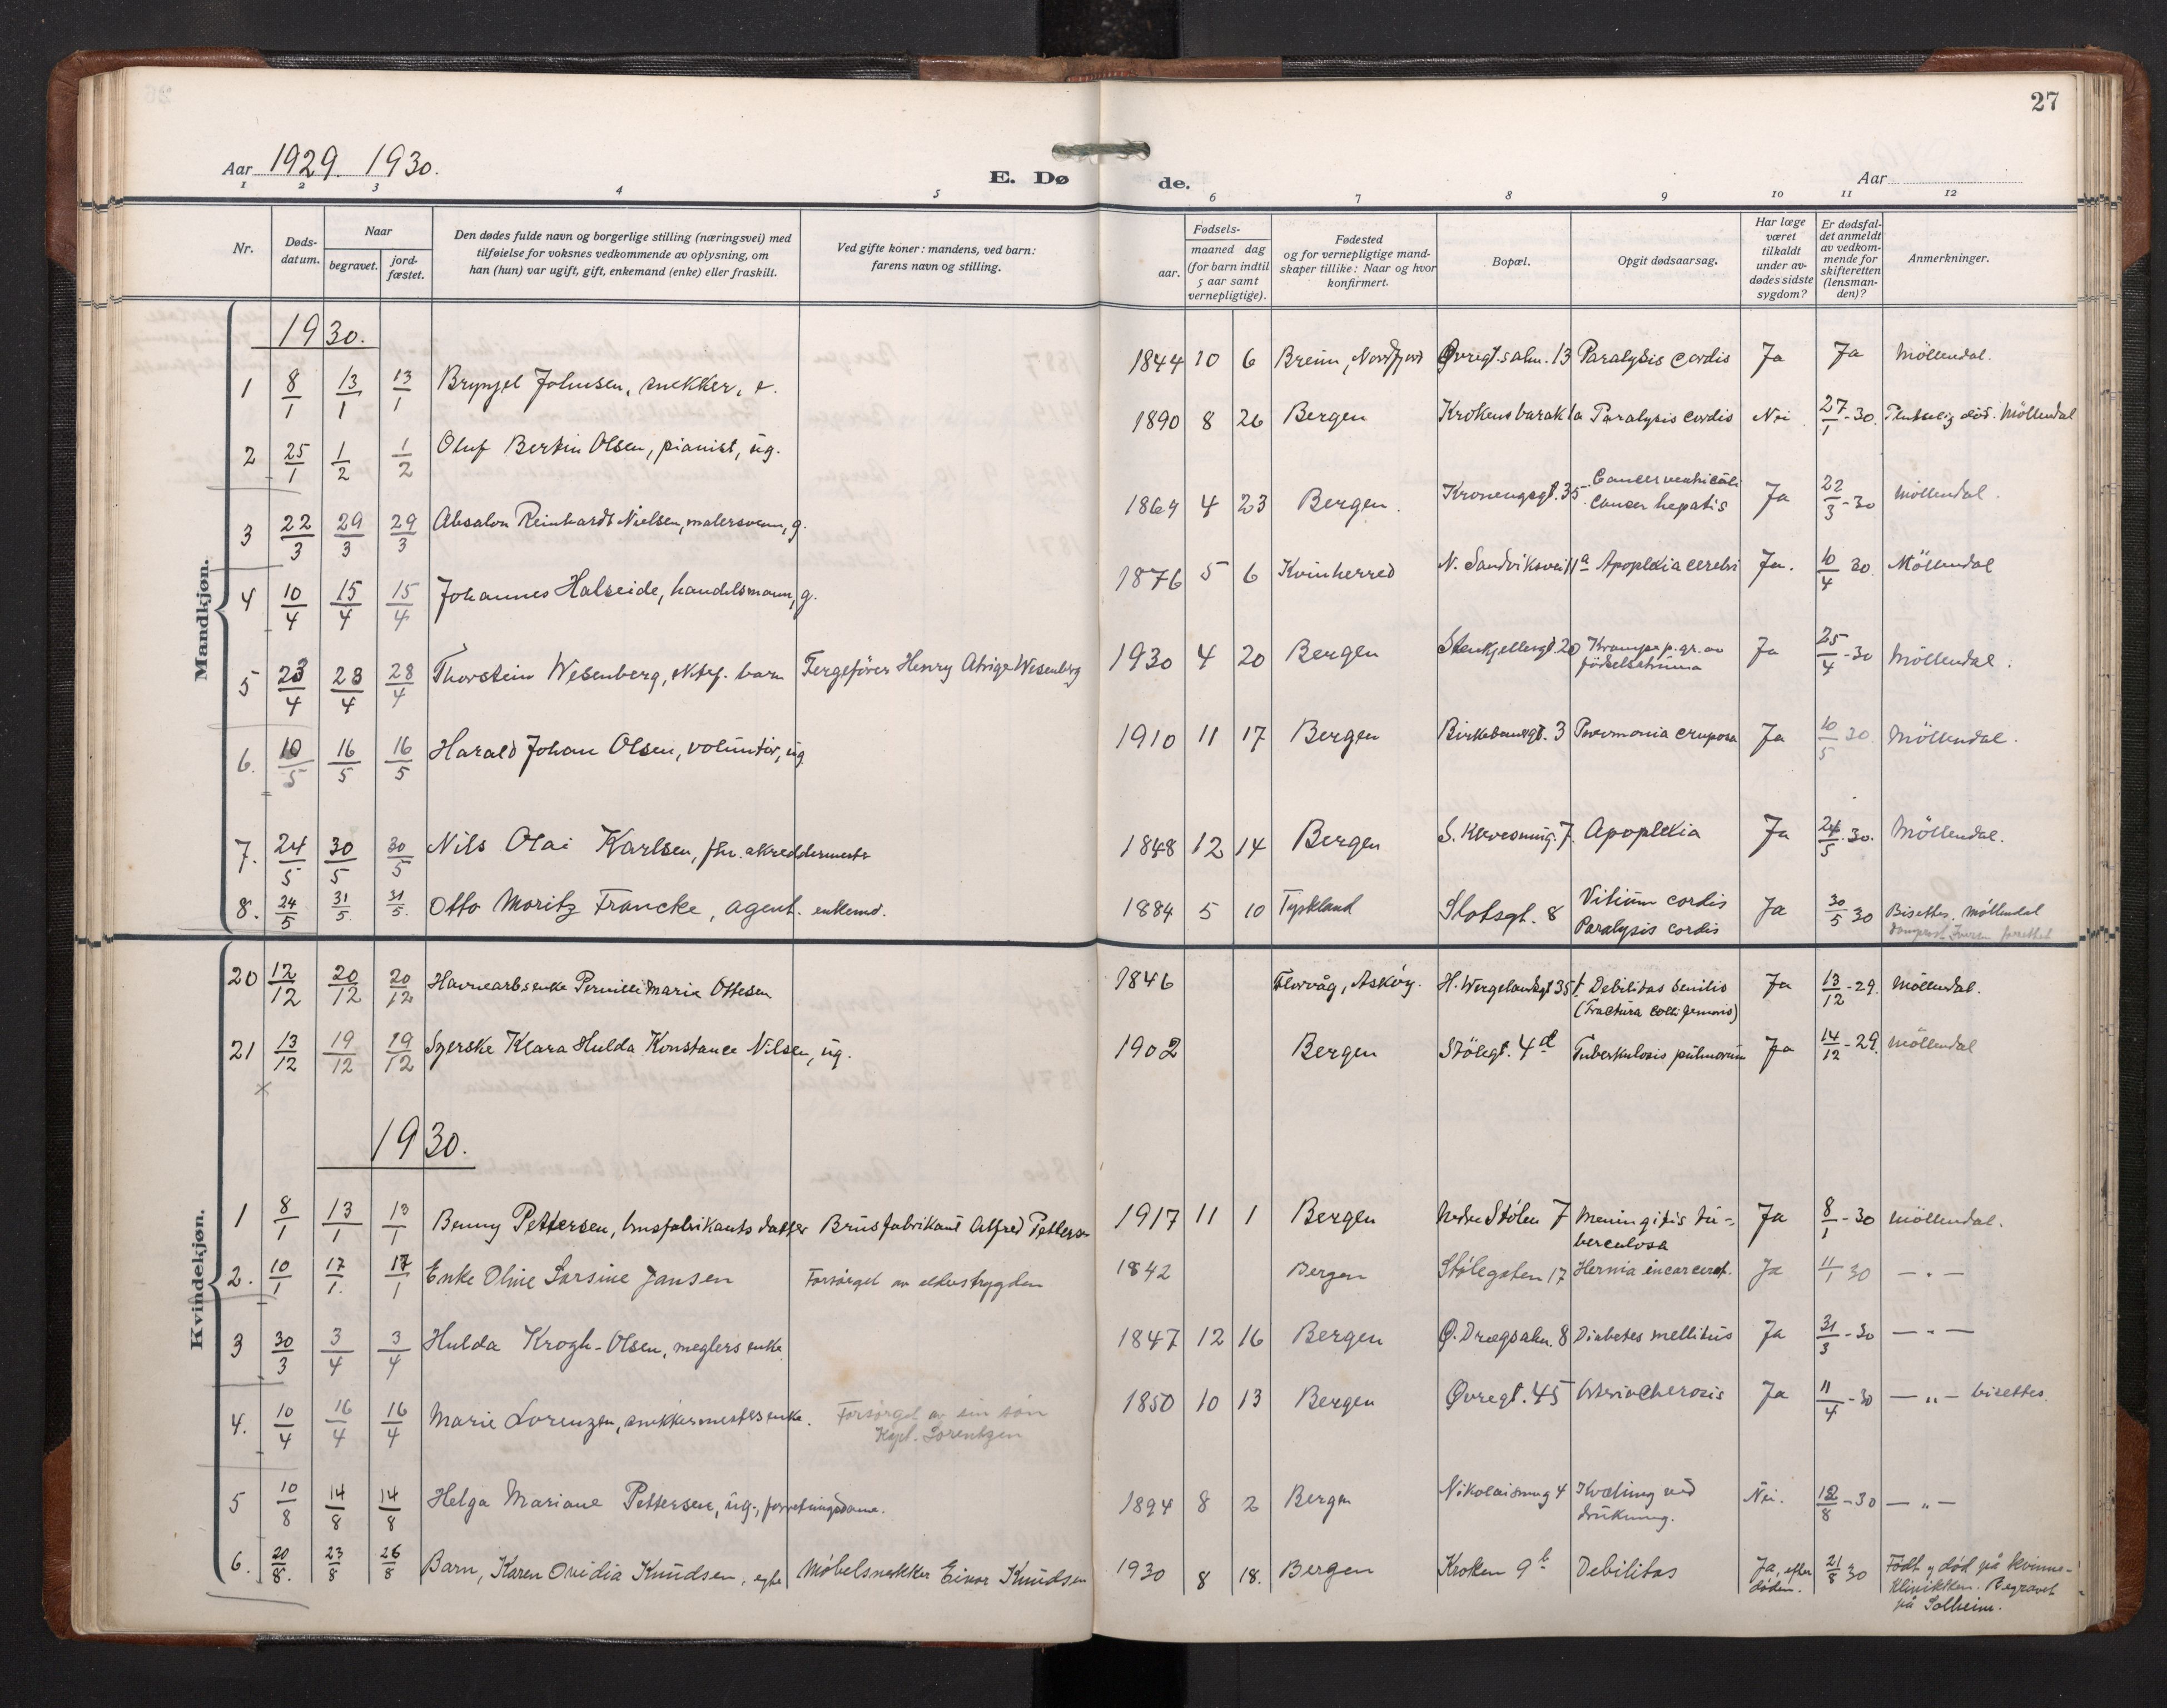 27
Aar 1929. 1930.
E. Døde.
Aar
1 2 3 4 5 6 7 8 9 10 11 12
Nr.
Døds-
datum.
Naar
begravet.
jord-
fæstet.
Den dødes fulde navn og borgerlige stilling (næringsvei) med
tilføielse for voksnes vedkommende av oplysning, om
han (hun) var ugift, gift, enkemand (enke) eller fraskilt.
Ved gifte koner: mandens, ved barn:
farens navn og stilling.
Fødsels-
aar.
maaned dag
(for barn indtil
5 aar samt
vernepligtige).
Fødested
og for vernepligtige mand-
skaper tillike: Naar og hvor
konfirmert.
Bopæl.
Opgit dødsaarsag.
Har læge
været
tilkaldt
under av-
dødes sidste
sygdom?
Er dødsfal-
det anmeldt
av vedkom-
mende for
skifteretten
(lensman-
den)?
Anmerkninger.
Mandkjøn.
1930.
1 8/1 13/1 13/1 Brynjel Johnsen, snekker, e. 1844 10 6 Breim, Nordfjord Øvregt.salm. 13 Paralysis cordis Ja Ja Möllendal.
2 25/1 1/2 1/2 Oluf Bertin Olsen, pianist, ug. 1890 8 26 Bergen Krokens barak 1a Paralysis cordis Nei 27/1-30. Plutselig död. Möllendal
3 22/3 29/3 29/3 Absalon Reinhardt Nielsen, malersvenn, g. 1869 4 23 Bergen. Kronengsgt. 35. Cancer ventriculi
Cancer hepatis Ja 22/3-30 Möllendal.
4 10/4 15/4 15/4 Johannes Halseide, handelsmann, g. 1876 5 6 Kvinherred N. Sandviksvei 11a Apoplexia cerebri Ja. 10/4 30 Möllendal
5 23/4 28/4 28/4 Thorstein Wesenberg, ektef. barn Fergefører Henry Wesenberg 1930 4 20 Bergen Stenkjellergt. 20 Krampe p. gr. av
födselstrauma Ja 25/4-30 Möllendal.
6. 10/5 16/5 16/5 Harald Johan Olsen, voluntör, ug 1910 11 17 Bergen Birkebeinergt. 3 Pneumonia cruposa Ja 10/5 30. Möllendal.
7. 24/5 30/5 30/5 Nils Olai Karlsen, fhv. skreddermester 1848 12 14 Bergen S. Kleivesmug. 7. Apoplexia Ja 24/5.30. Möllendal.
8. 24/5 31/5. 31/5. Otto Moritz Francke, agent. enkemd. 1884 5 10 Tyskland Slotsgt. 8 Vitium cordis
Paralysis cordis Ja 30/5 30 Bisettes. Möllendal
Kvindekjøn.
20 12/12 20/12 20/12 Havnearbs enke Pernille Marie Ottesen 1846 Florvåg, Askøy. H. Wergelandsgt 35 Debilitas senilis
(Fractura colli femoris) Ja 13/12-29. Möllendal.
21 13/12 19/12 19/12 Syerske Klara Hulda Konstance Nilsen, ug. 1902 Bergen Stölegt. 4d Tuberkulosis pulmonum Ja 14/12-29. Möllendal
1930.
1 8/1 13/1 13/1 Benny Pettersen, brusfabrikants datter Brusfabrikant Alfred Pettersen 1917 11 1 Bergen Nedre Stølen 7 Meningitis tu-
berculosa Ja 8/1-30 Möllendal.
2. 10/1 17/1. 17/1 Enke Oline Sarsine Jansen Forsørget av alderstrygden 1842 Bergen Stølegaten 17 Hernia incarcerat. Ja 11/1 30 — " —
3 30/3 3/4 3/4 Hulda Krogh-Olsen, meglers enke 1847 12 16 Bergen Ø. Dregsalm. 8 Diabetes mellitus Ja 31/3-30 — " —
4. 10/4 16/4 16/4 Marie Lorenzen, snekkermesters enke. Forsørget av sin sön
Kapt. Lorentzen 1850 10 13 Bergen Øvregt. 45 Ja 11/4-30 — " — bisettes.
5 10/8 14/8 14/8 Helga Mariane Pettersen, ug., forretningsdame. 1894 8 2 Bergen Nikolaismug 4 Kvælning ved
drukning. Nei. 12/8-30 — " —
6. 20/8. 23/8 26/8 Barn, Karen Ovidia Knudsen, egte Møbelsnekker Einar Knudsen 1930 8 18. Bergen Kroken 9b Debilitas Ja, efter
döden. 21/8 30 Födt og död på kvinne-
klinikken. Begravet
på Solheim.